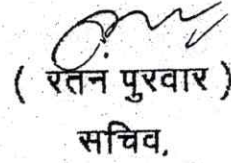 ( रतन पुरवार )
सचिव.